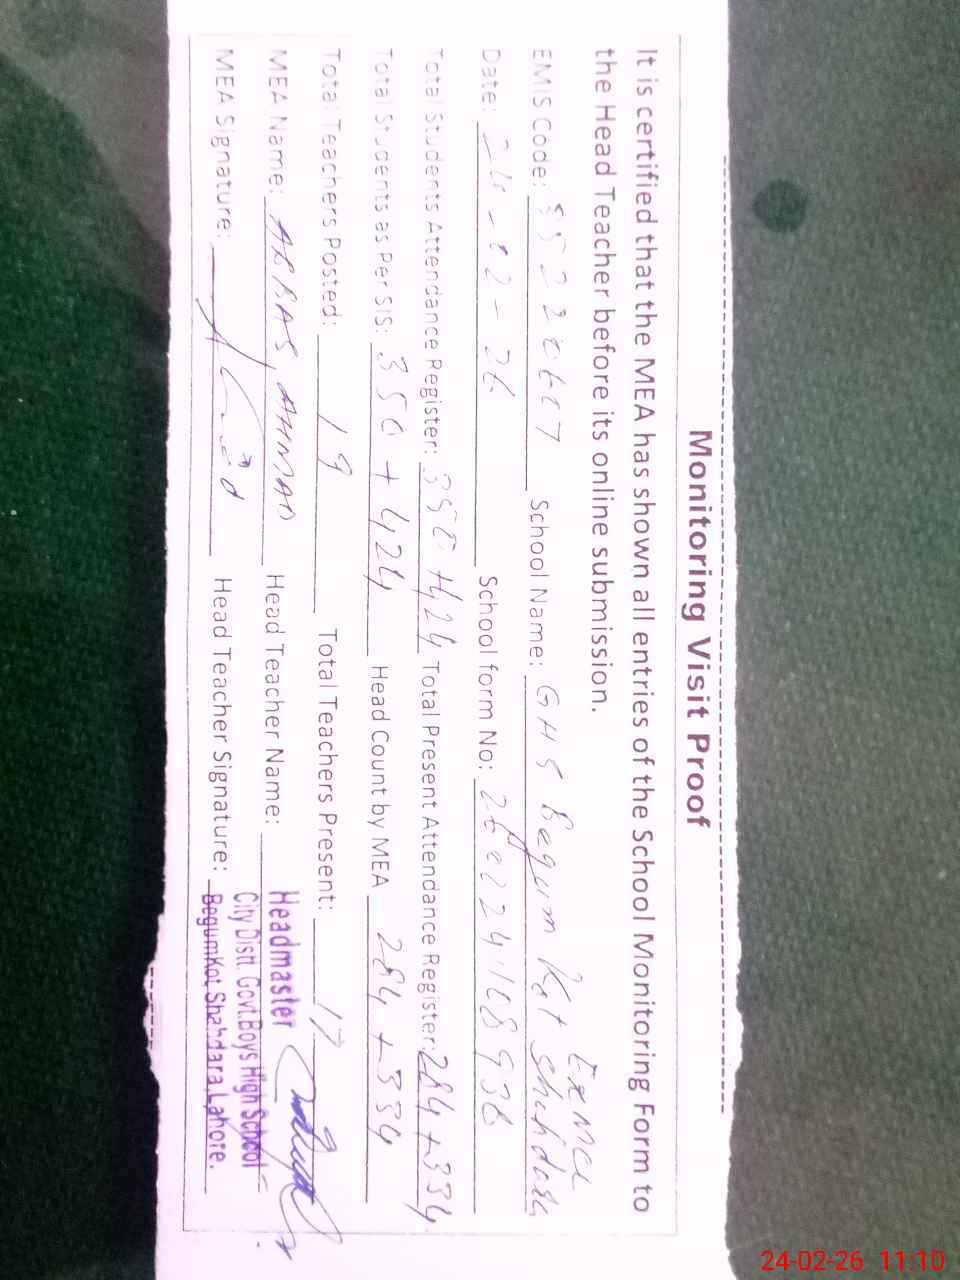 Monitoring Visit Proof
It is certified that the MEA has shown all entries of the School Monitoring Form to
the Head Teacher before its online submission.
Ex MCL
EMIS Code: 35220607 School Name: GHS Begum Kot Shahdara
Date: 24-02-26 School form No:
Total Students Attendance Register: 350+424 Total Present Attendance Register: 284+334
Total Students as Per SIS: 350+424 Head Count by MEA 284+334
Total Teachers Posted: 19 Total Teachers Present: 17
MEA Name: ABBAS, AHMAD Head Teacher Name:
MEA Signature: Head Teacher Signature:
Headmaster
City Distt. Govt.Boys High School
BegumKot Shahdara,Lahore.
24-02-26 11:10